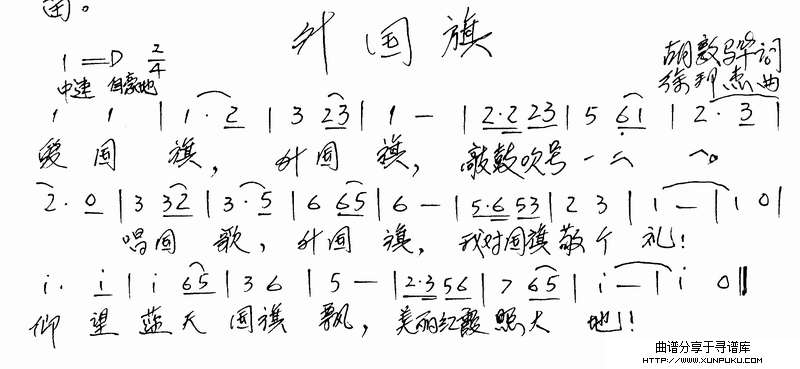 曲。
升国旗
1=D 2/4
胡敦骅词
中速 自豪地
徐邦杰曲
1 1 | 1· 2 | 3 23 | 1 - | 2·2 23 | 5 61 | 2· 3 |
爱国旗，升国旗，敲鼓吹号一二一。
2· 0 | 3 32 | 3· 5 | 6 65 | 6 - | 5·6 53 | 2 3 | 1 - | 1 0 |
唱国歌，升国旗，我对国旗敬个礼！
i· i | i 65 | 3 6 | 5 - | 2·3 56 | 7 65 | i - | i 0 ‖
仰望蓝天国旗飘，美丽红霞照大地！
曲谱分享于寻谱库
HTTP://WWW.XUNPUKU.COM